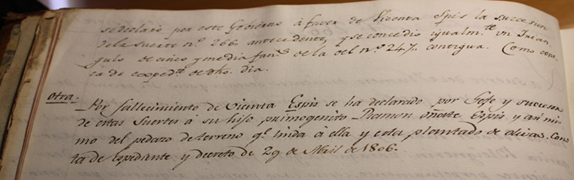 se declaró por este Gobierno à favor de Vicenta Espis la succesion
de la suerte nº 266 antecedente, y se concedió igualmte un
gulo de año y media fans de la del nº 247 contigua. Como
ta de expedte de dho. dia.
otra. Por fallecimiento de Vicenta Espis se ha declarado por Gefe y sucesora
de estas Suertes à su hijo primogenito Ramon Espis y asi mis
mo del pedazo de terreno q.e linda à ella y esta plantado de olivas. Cons
ta de expediente y decreto de 29 de Abril de 1806.